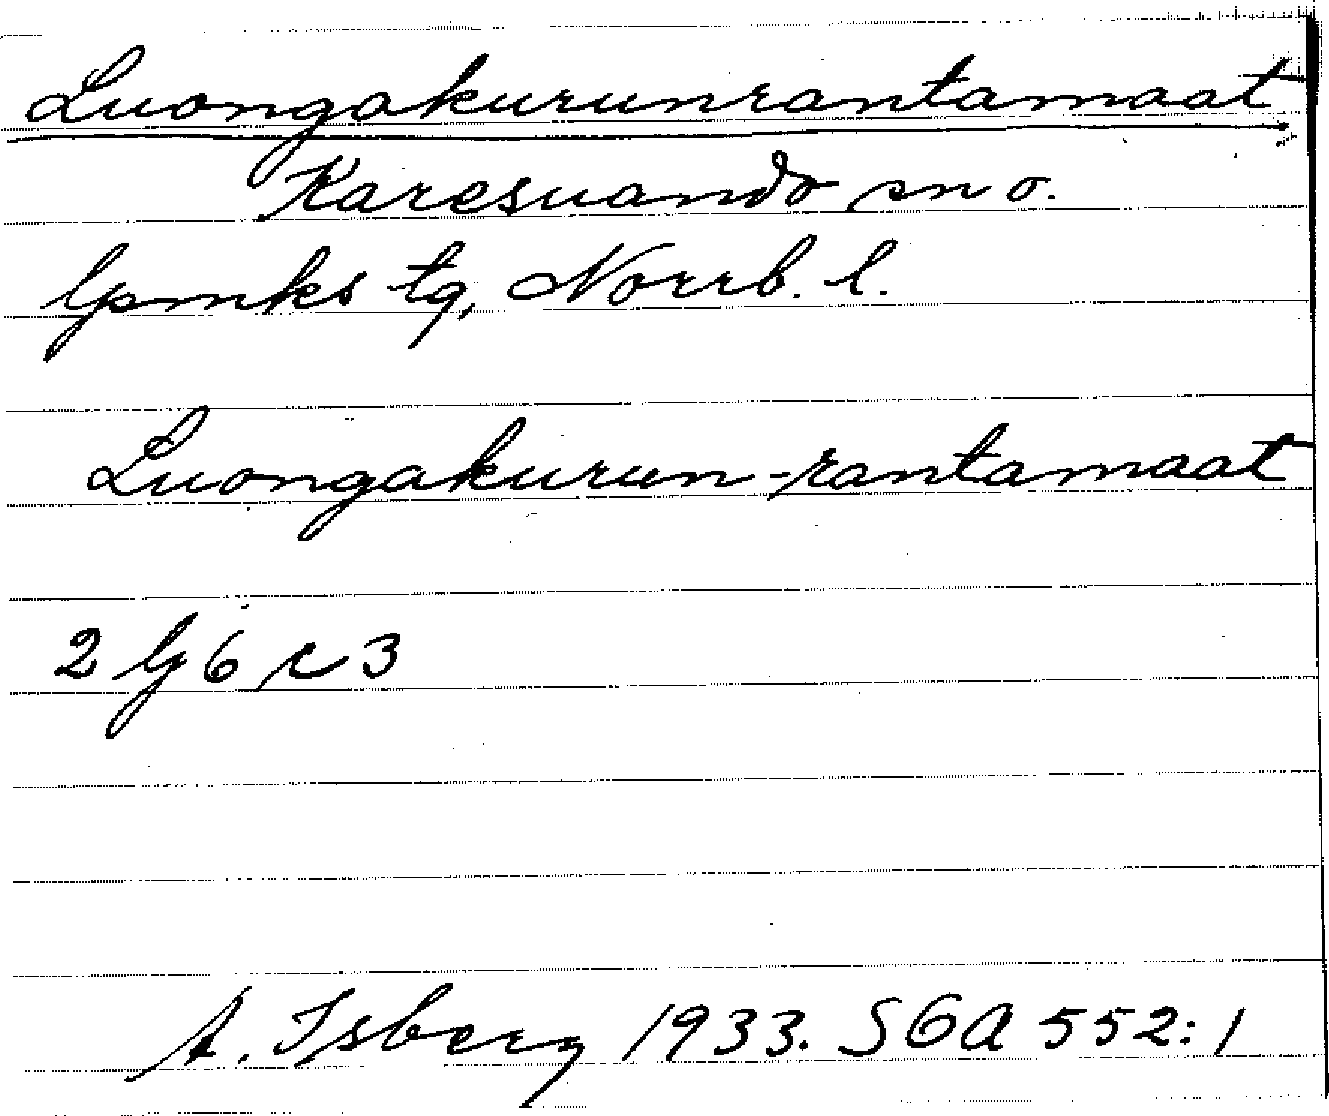 Luongakurunrantamaat
Karesuando sn o.
lpmks tg, Norrb. l.
Luongakurun-rantamaat
2 6 c 3
A. Isberg 1933. SOA 552:1